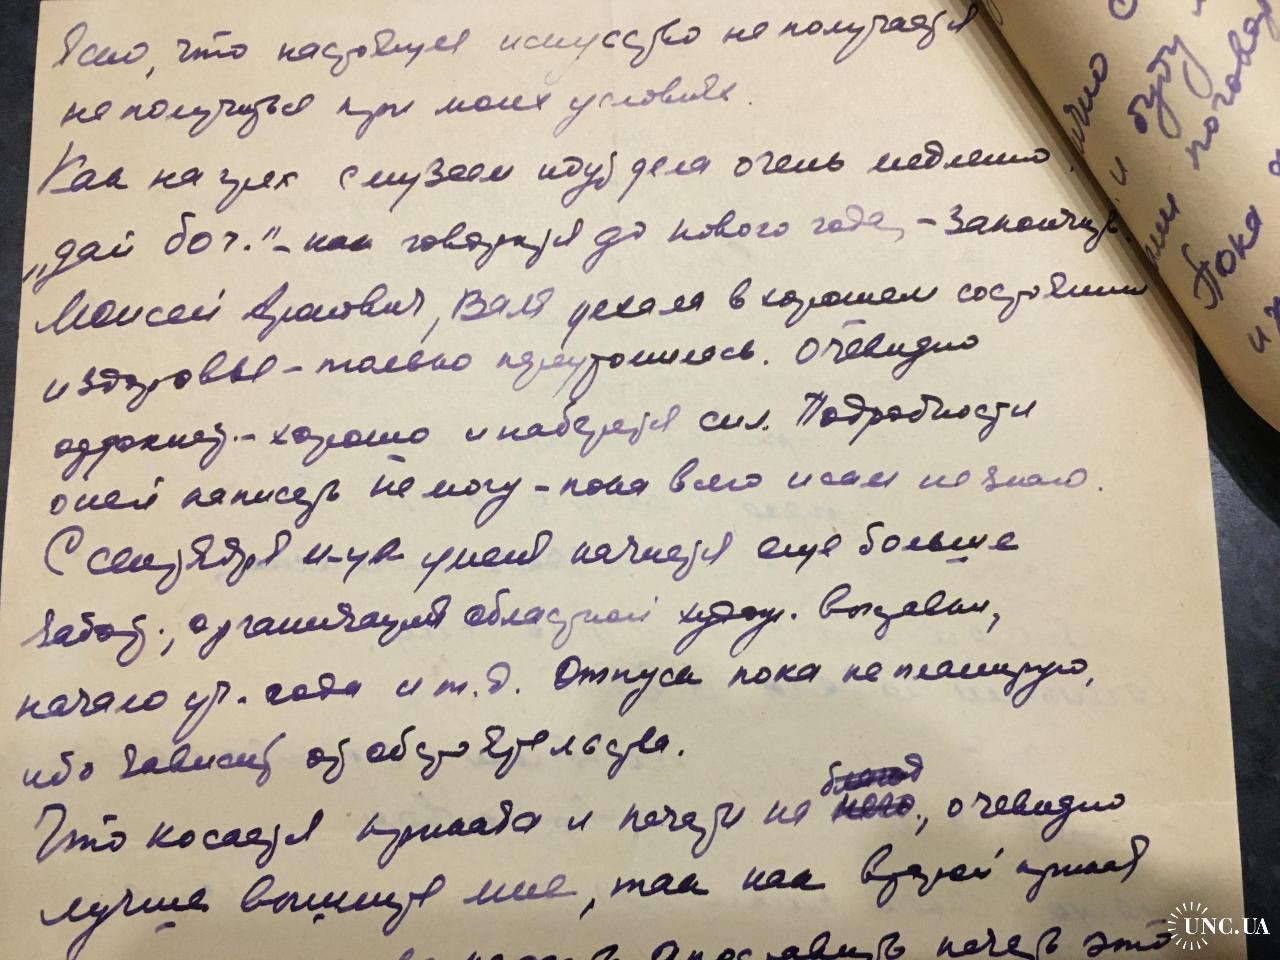 Ясно, что настоящее искусство не получается
не получится при моих условиях.
Как на грех с музеем идут дела очень медленно.
„дай бог." – как говорится до нового года, – закончить.
Моисей Аронович, Валя уехала в хорошем состоянии
и здоровье – только переутомилась. Очевидно
отдохнет – хорошо и наберется сил. Подробности
о ней написать не могу – пока всего и сам не знаю.
С сентября м-ца у меня начнется еще больше
забот., организация областной худож. выставки,
начало уч. года и т.д. Отпуск пока не планирую,
ибо зависит от обстоятельства.
Что касается приказа и печати на, очевидно
лучше вышлите мне, так как второй приказ
поставить печать это
и буду
Пока
UNC.UA